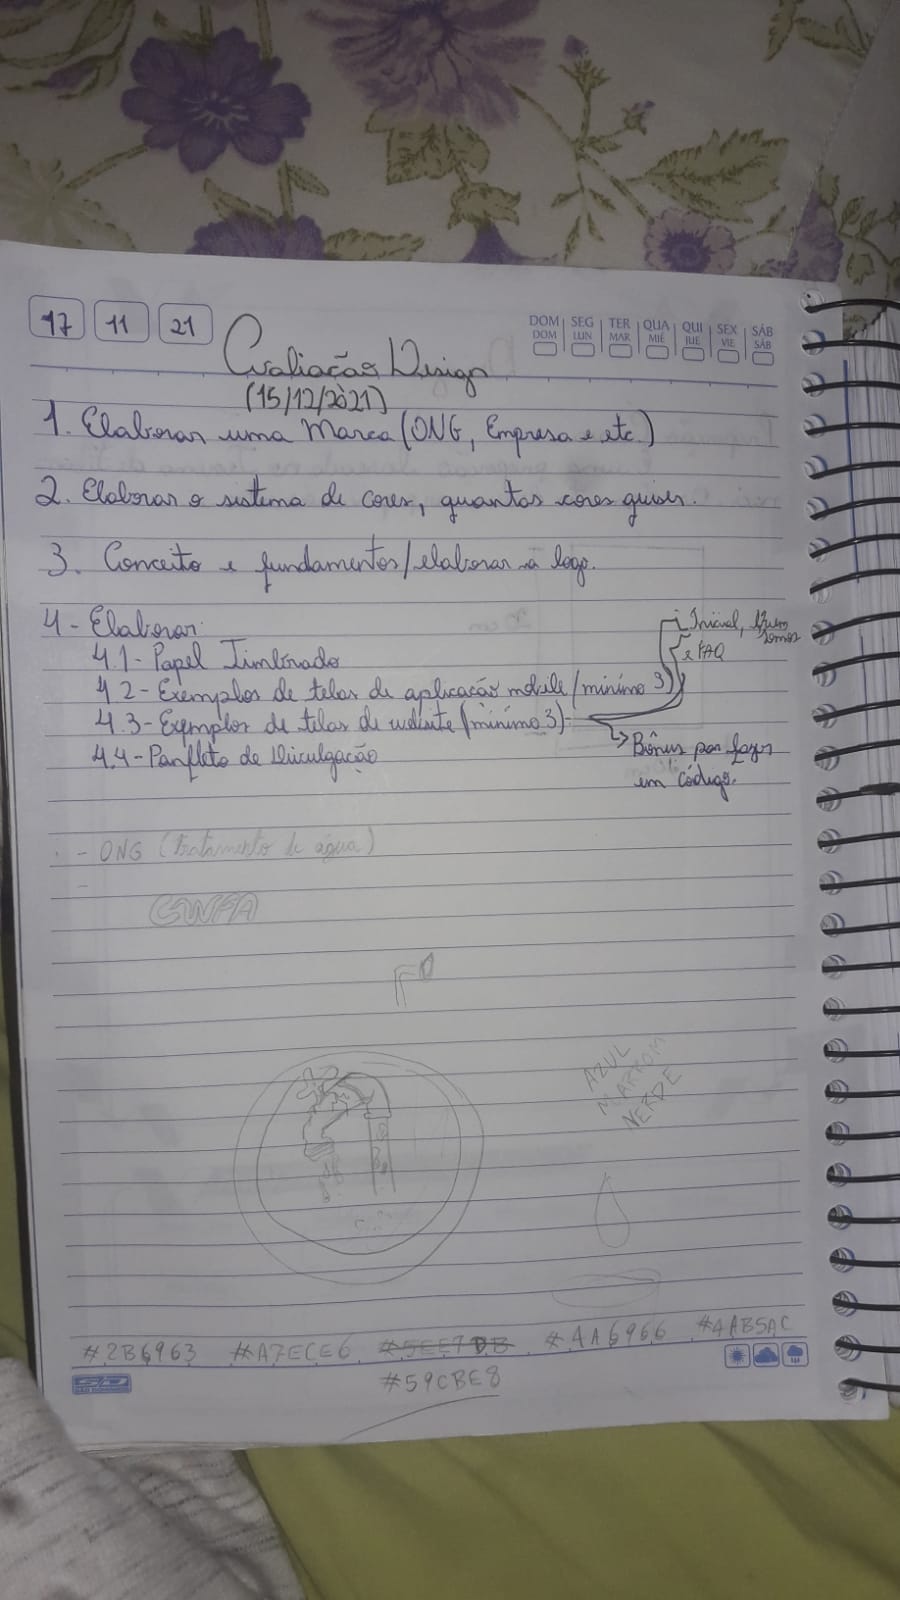 17 11 21
DOM SEG TER QUA QUI SEX SÁB
DOM LUN MAR MIÉ JUE VIE SÁB
Avaliação Design
(15/12/2021)
1. Elaborar uma Marca (ONG, Empresa e etc.)
2. Elaborar o sistema de cores, quantas cores quiser.
3. Conceito e fundamentos/elaborar a logo.
4 - Elaborar:
Inicial, Quem somos
e FAQ
4.1 - Papel Timbrado
4.2 - Exemplos de telas de aplicação mobile (mínimo 3)
4.3 - Exemplos de telas de website (mínimo 3)
4.4 - Panfleto de Divulgação
Bônus por fazer
em código.
- ONG (tratamento de água)
-
CWFA
AZUL
MARROM
VERDE
#2B6963 #A7ECE6 #5EE7DB #4A6966 #4AB5AC
#59CBE8